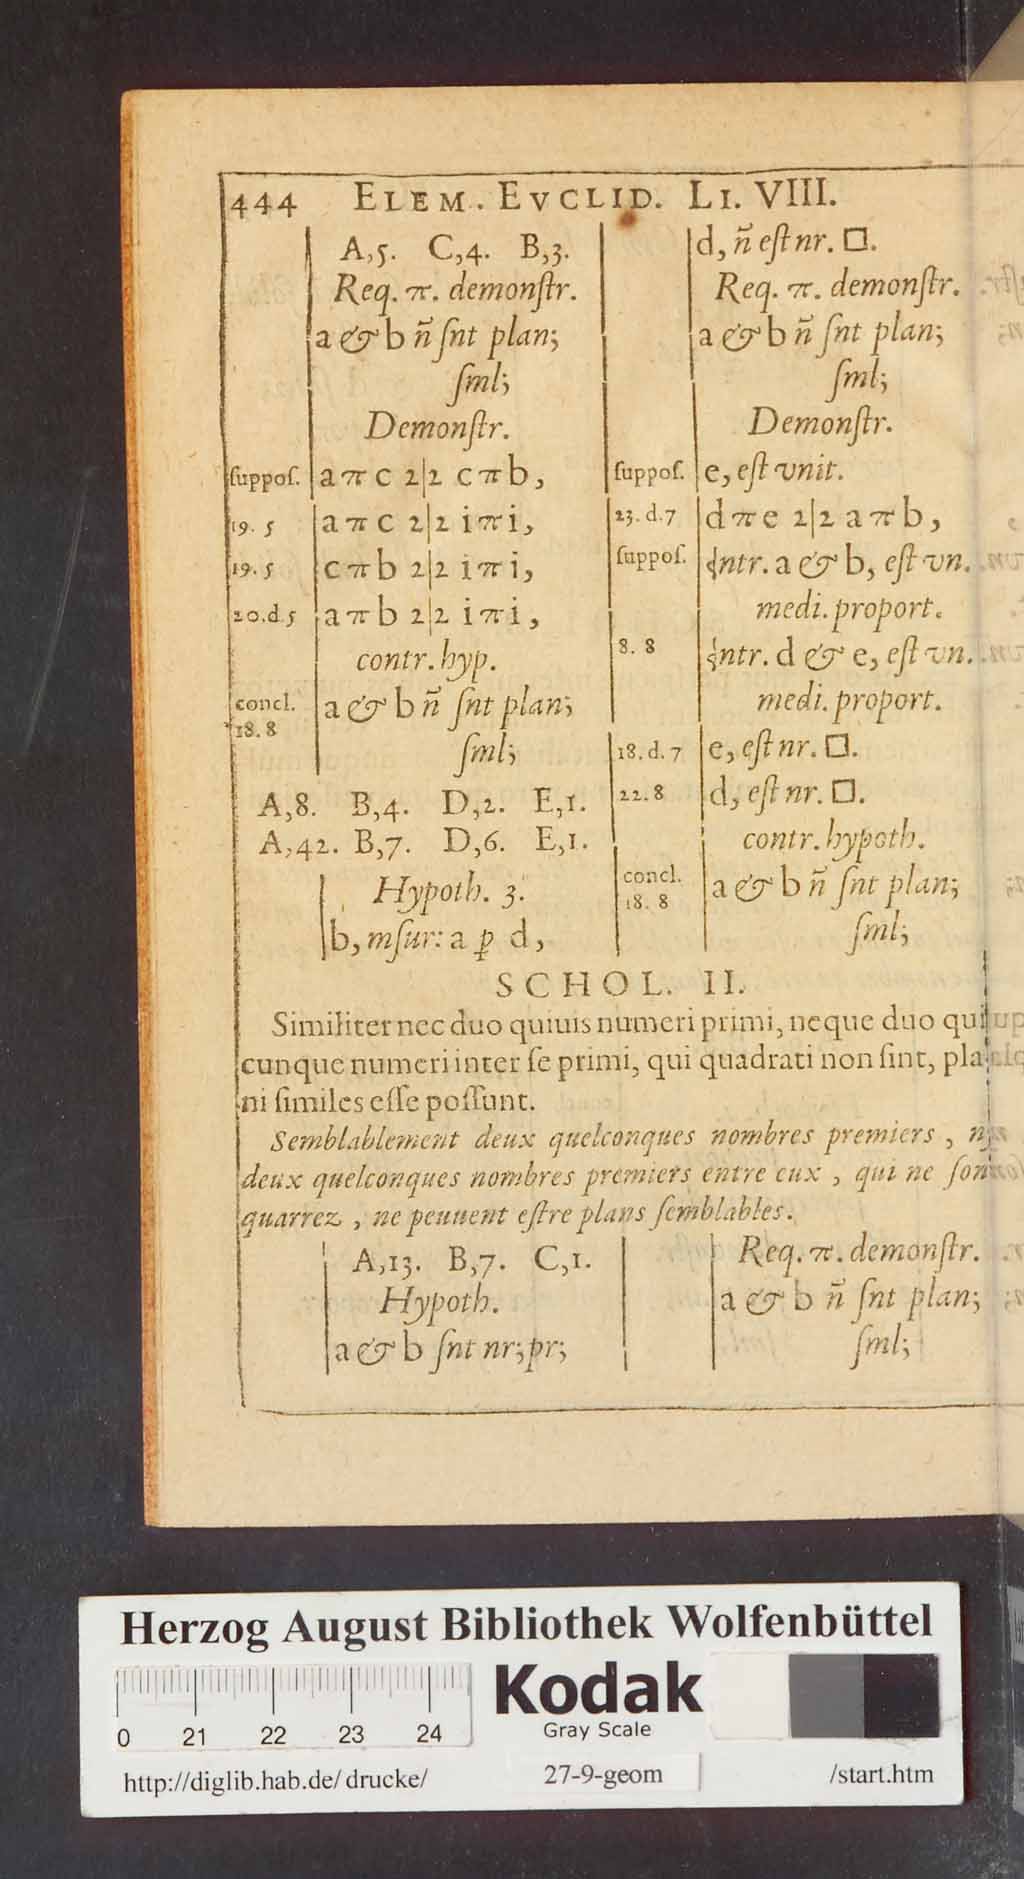 444 ELEM. EVCLID. LI. VIII.
A,5. C,4. B,3.
Req. π. demonſtr.
a & b ñ ſnt plan;
ſml;
Demonſtr.
ſuppoſ. a π c 2|2 c π b,
19. 5 a π c 2|2 i π i,
19. 5 c π b 2|2 i π i,
20. d. 5 a π b 2|2 i π i,
contr. hyp.
concl. a & b ñ ſnt plan;
18. 8
ſml;
A,8. B,4. D,2. E,1.
A,42. B,7. D,6. E,1.
Hypoth. 3.
b, mſur: a ꝑ d,
d, ñ eſt nr. □.
Req. π. demonſtr.
a & b ñ ſnt plan;
ſml;
Demonſtr.
ſuppoſ. e, eſt vnit.
23. d. 7 d π e 2|2 a π b,
ſuppoſ. ſntr. a & b, eſt vn.
medi. proport.
8. 8 ſntr. d & e, eſt vn.
medi. proport.
18. d. 7 e, eſt nr. □.
22. 8 d, eſt nr. □.
contr. hypoth.
concl. a & b ñ ſnt plan;
18. 8
ſml;
SCHOL. II.
Similiter nec duo quiuis numeri primi, neque duo qui
cunque numeri inter ſe primi, qui quadrati non ſint, pla
ni ſimiles eſſe poſſunt.
Semblablement deux quelconques nombres premiers, ny
deux quelconques nombres premiers entre eux, qui ne ſon
quarrez, ne peuuent eſtre plans ſemblables.
A,13. B,7. C,1.
Hypoth.
a & b ſnt nr; pr;
Req. π. demonſtr.
a & b ñ ſnt plan;
ſml;
Herzog August Bibliothek Wolfenbüttel
Kodak
Gray Scale
0 21 22 23 24
http://diglib.hab.de/drucke/ 27-9-geom /start.htm